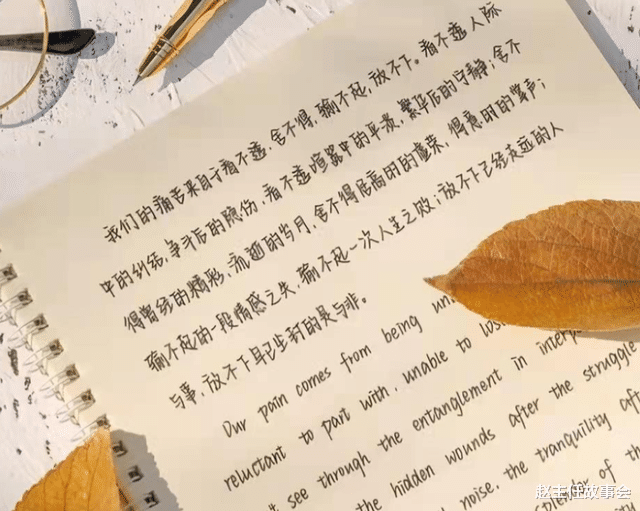 我们的痛苦来自于看不透,舍不得,输不起,放不下。看不透人际
中的纠结,争斗后的隐伤,看不透喧嚣中的平淡,繁华后的宁静;舍不
得曾经的精彩,流逝的岁月,舍不得居高时的虚荣,得意时的掌声;
输不起的一段情感之失,输不起一次人生之败;放不下已经走远的人
与事,放不下早已尘封的是与非。
Our pain comes from being
reluctant to part with, unable to
see through the entanglement in
the hidden wounds after the struggle
noise, the tranquility
splendor of the
赵主任故事会